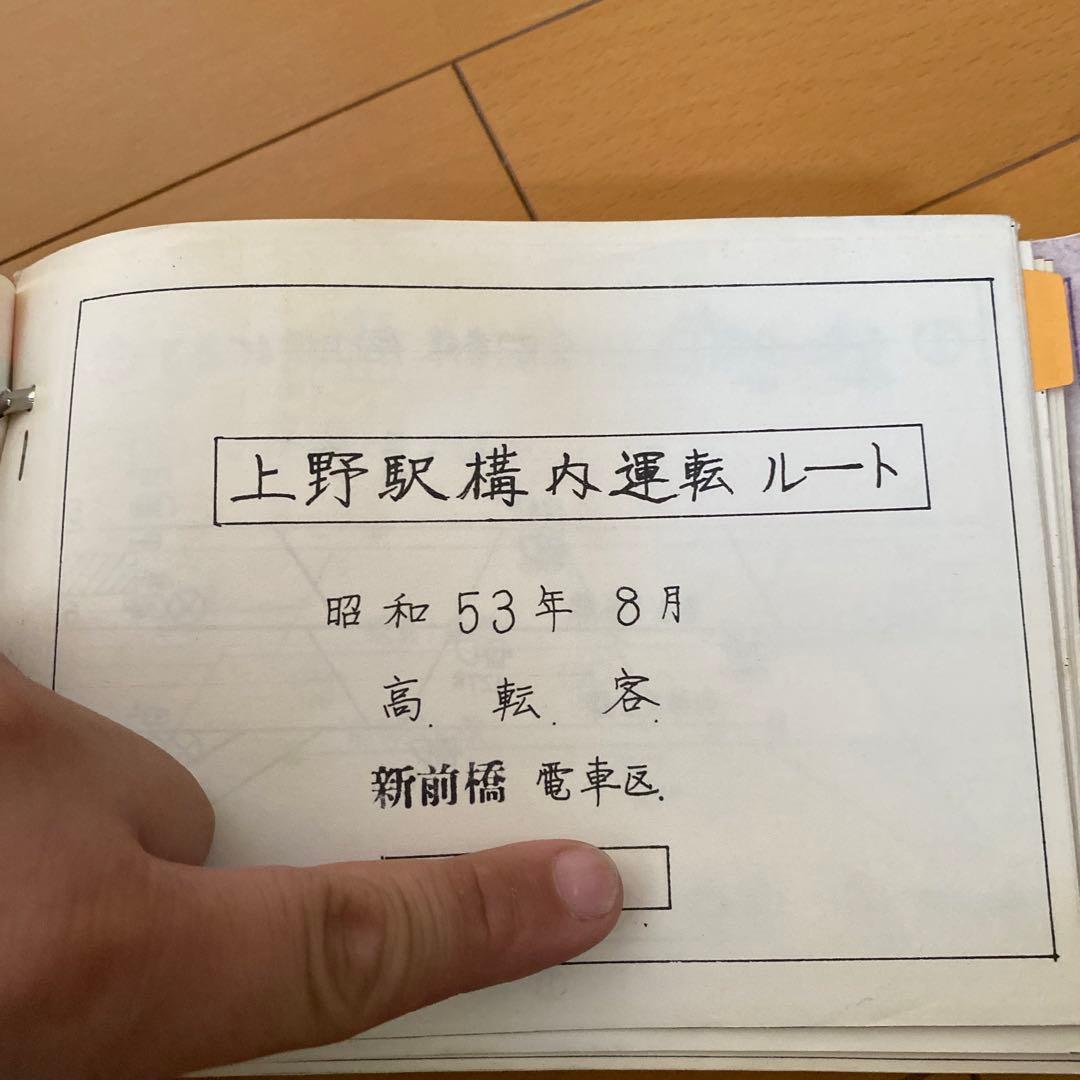 上野駅構内運転ルート
昭和53年8月
高.転.客.
新前橋電車区.